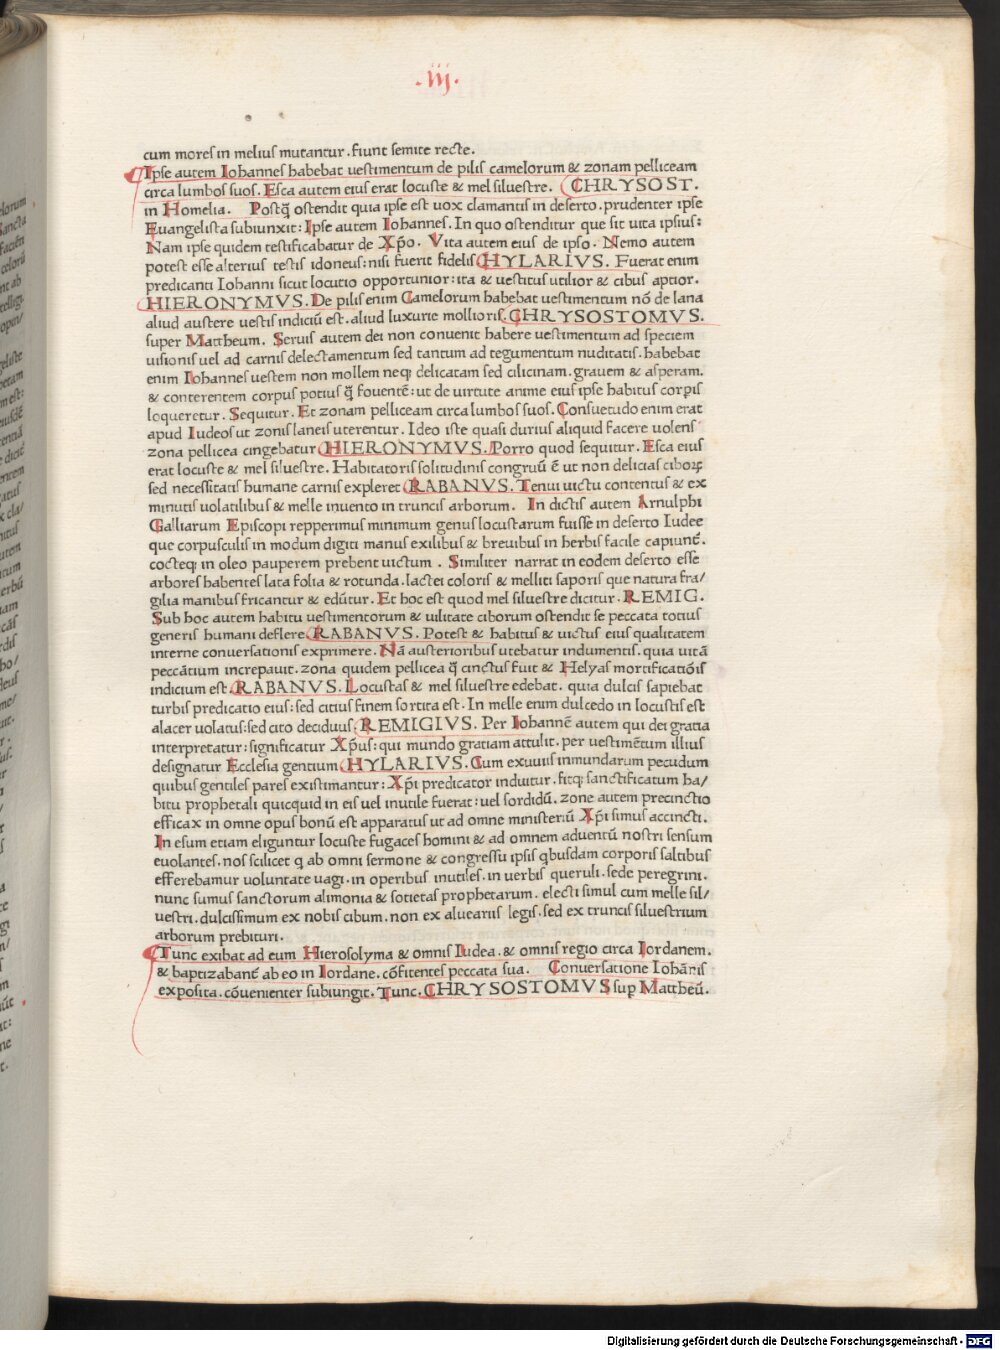 .iij.
cum moreſ in meliuſ mutantur . fiunt ſemite recte.
Ipſe autem Iohanneſ habebat ueſtimentum de piliſ camelorum & zonam pelliceam
circa lumboſ ſuoſ. Eſca autem eiuſ erat locuſte & mel ſilueſtre. CHRYSOST.
in Homelia. Poſtq̃ oſtendit quia ipſe eſt uox clamantiſ in deſerto . prudenter ipſe
Euangeliſta ſubiunxit: Ipſe autem Iohanneſ. In quo oſtenditur que ſit uita ipſiuſ:
Nam ipſe quidem teſtificabatur de Xp̃o. Vita autem eiuſ de ipſo. Nemo autem
poteſt eſſe alteriuſ teſtiſ idoneuſ: niſi fuerit fideliſ HYLARIVS. Fuerat enim
predicanti Iohanni ſicut locutio opportunior: ita & ueſtituſ utilior & cibuſ aptior.
HIERONYMVS. De piliſ enim Camelorum habebat ueſtimentum nõ de lana
aliud auſtere ueſtiſ indiciũ eſt . aliud luxurie mollioriſ. CHRYSOSTOMVS.
ſuper Mattheum. Seruiſ autem dei non conuenit habere ueſtimentum ad ſpeciem
uiſioniſ uel ad carniſ delectamentum ſed tantum ad tegumentum nuditatiſ. habebat
enim Iohanneſ ueſtem non mollem neq; delicatam ſed cilicinam . grauem & aſperam.
& conterentem corpuſ potiuſ q̃ fouentẽ: ut de uirtute anime eiuſ ipſe habituſ corpiſ
loqueretur. Sequitur. Et zonam pelliceam circa lumboſ ſuoſ. Conſuetudo enim erat
apud Iudeoſ ut zoniſ laneiſ uterentur. Ideo iſte quaſi duriuſ aliquid facere uolenſ
zona pellicea cingebatur HIERONYMVS. Porro quod ſequitur. Eſca eiuſ
erat locuſte & mel ſilueſtre. Habitatoriſ ſolitudiniſ congruũ ẽ ut non deliciaſ ciboꝝ
ſed neceſſitatiſ humane carniſ expleret RABANVS. Tenui uictu contentuſ & ex
minutiſ uolatilibuſ & melle inuento in trunciſ arborum. In dictiſ autem Arnulphi
Galliarum Epiſcopi repperimuſ minimum genuſ locuſtarum fuiſſe in deſerto Iudee
que corpuſculiſ in modum digiti manuſ exilibuſ & breuibuſ in herbiſ facile capiunẽ.
cocteq; in oleo pauperem prebent uictum. Similiter narrat in eodem deſerto eſſe
arboreſ habenteſ lata folia & rotunda . lactei coloriſ & melliti ſaporiſ que natura fra/
gilia manibuſ fricantur & edũtur. Et hoc eſt quod mel ſilueſtre dicitur. REMIG.
Sub hoc autem habitu ueſtimentorum & uilitate ciborum oſtendit ſe peccata totiuſ
generiſ humani deflere RABANVS. Poteſt & habituſ & uictuſ eiuſ qualitatem
interne conuerſationiſ exprimere. Nã auſterioribuſ utebatur indumentiſ. quia uitã
peccãtium increpauit . zona quidem pellicea q̃ cinctuſ fuit & Helyaſ mortificatiõiſ
indicium eſt. RABANVS. Locuſtaſ & mel ſilueſtre edebat. quia dulciſ ſapiebat
turbiſ predicatio eiuſ: ſed citiuſ finem ſortita eſt. In melle enim dulcedo in locuſtiſ eſt
alacer uolatuſ: ſed cito deciduuſ. REMIGIVS. Per Iohannẽ autem qui dei gratia
interpretatur: ſignificatur Xp̃uſ: qui mundo gratiam attulit . per ueſtimẽtum illiuſ
deſignatur Eccleſia gentium HYLARIVS. Cum exuuiiſ inmundarum pecudum
quibuſ gentileſ pareſ exiſtimantur: Xp̃i predicator induitur. fitq; ſanctificatum ha/
bitu prophetali quicquid in eiſ uel inutile fuerat: uel ſordidũ. zone autem precinctio
efficax in omne opuſ bonũ eſt apparatuſ ut ad omne miniſteriũ Xp̃i ſimuſ accincti.
In eſum etiam eliguntur locuſte fugaceſ homini & ad omnem aduentũ noſtri ſenſum
euolanteſ. noſ ſcilicet q ab omni ſermone & congreſſu ipſiſ qbuſdam corporiſ ſaltibuſ
efferebamur uoluntate uagi. in operibuſ inutileſ. in uerbiſ queruli. ſede peregrini.
nunc ſumuſ ſanctorum alimonia & ſocietaſ prophetarum. electi ſimul cum melle ſil/
ueſtri. dulciſſimum ex nobiſ cibum. non ex aluearuſ legiſ. ſed ex trunciſ ſilueſtrium
arborum prebituri.
Tunc exibat ad eum Hieroſolyma & omniſ Iudea. & omniſ regio circa Iordanem.
& baptizabanẽ ab eo in Iordane. cõfitenteſ peccata ſua. Conuerſatione Iohãniſ
expoſita. cõuenienter ſubiungit. Tunc. CHRYSOSTOMVS ſup Mattheũ.
Digitalisierung gefördert durch die Deutsche Forschungsgemeinschaft - DFG